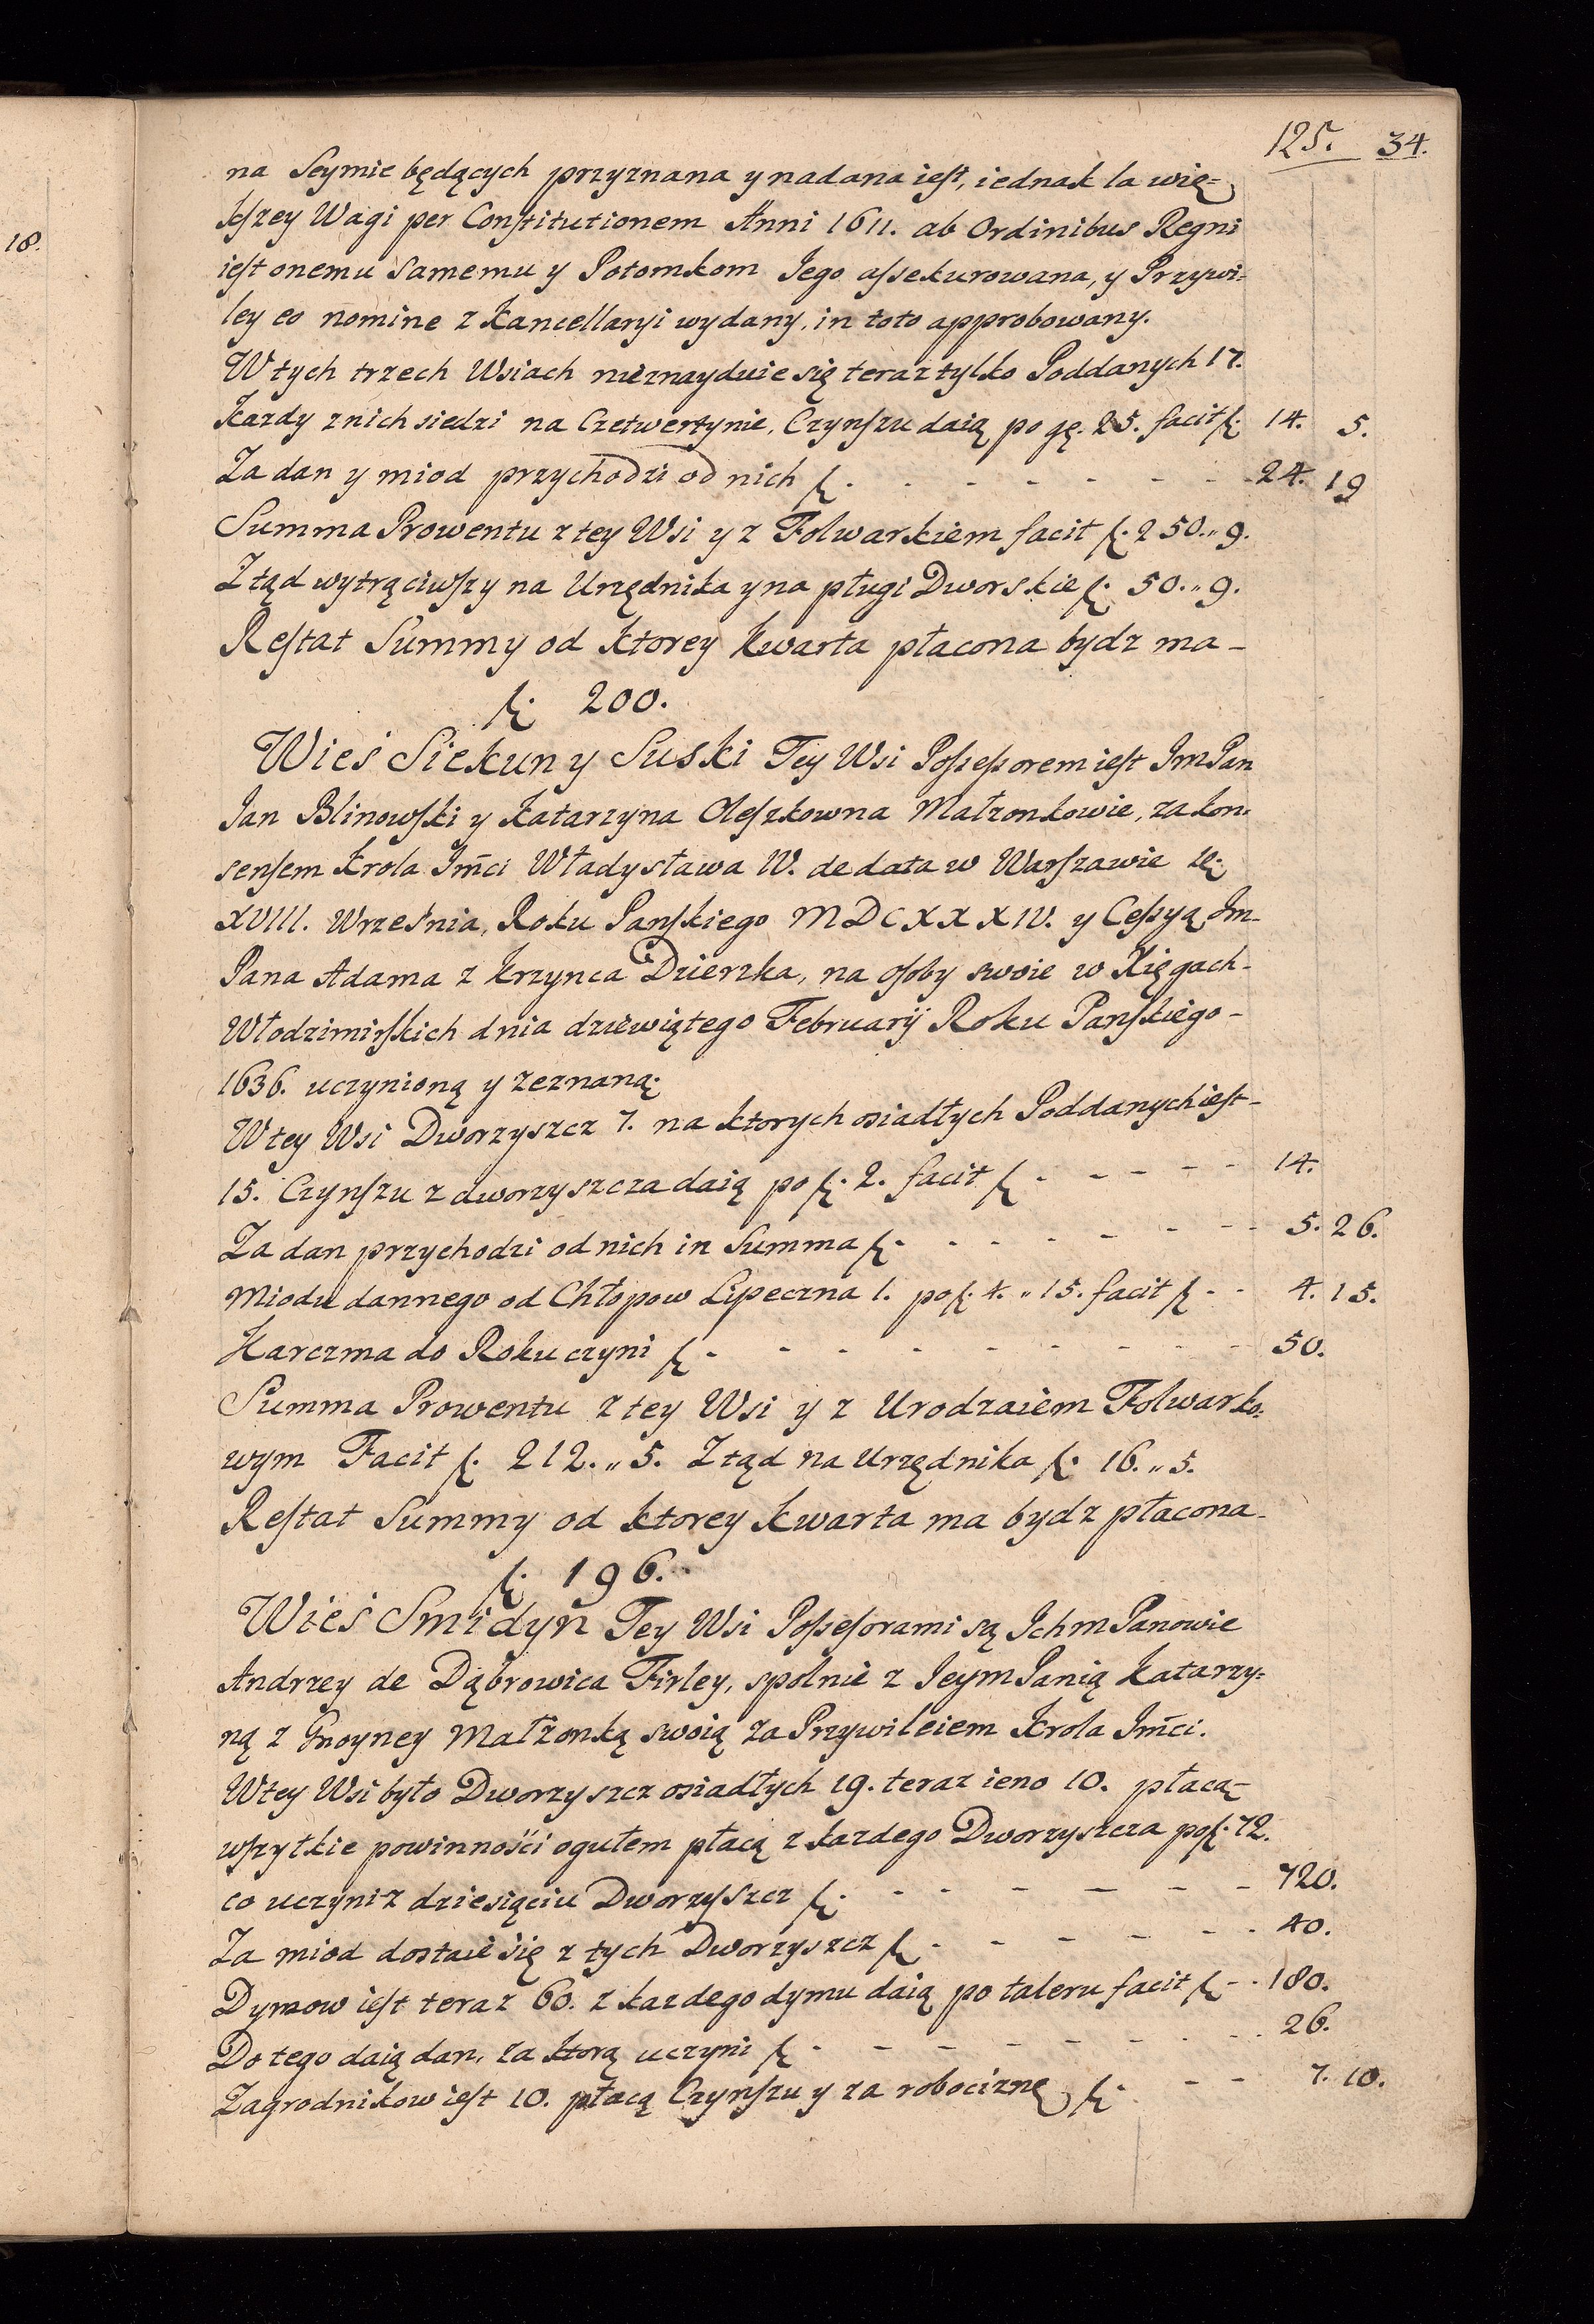 125. 34.
18.
na Seymie będących przyznana y nadana iest, iednak la wię=
kszey Wagi per Constitutionem Anni 1611. ab Ordinibus Regni
iest onemu samemu y Potomkom Iego assekurowana, y Przywi=
ley eo nomine z Kancellaryi wydany, in toto approbowany.
W tych trzech Wsiach nieznayduie się teraz tylko Poddanych 17.
Kazdy z nich siedzi na Czetwertynie, Czynszu daią po gę. 25. facit f. 14. 5.
Za dan y miod przychodzi od nich f. - - - - - - 24. 19
Summa Prowentu z tey Wsi y z Folwarkiem facit f. 250.„ 9.
Ztąd wytrąciwszy na Urzędnika y na pługi Dworskie f. 50.„ 9.
Restat Summy od ktorey kwarta płacona bydz ma -
f. 200.
Wieś Siekun y Suski Tey Wsi Possessorem iest Im Pan
Jan Blinowski y Katarzyna Oleszkowna Małzonkowie, za kon=
sensem Krola Jm̃ci Władysława IV. de data w Warszawie
XVIII. Września, Roku Panskiego MDCXXXIV. y Cessyą Im
Pana Adama z Krzynca Dzierzka, na osoby swoie w Xięgach -
Włodzimirskich dnia dziewiątego Februarij Roku Panskiego -
1636. uczynioną y zeznaną.
W tey Wsi Dworzyszcz 7. na ktorych osiadłych Poddanych iest -
15. Czynszu z dworzyszcza daią po f. 2. facit f. - - - - - 14.
Za dan przychodzi od nich in Summa f. - - - - - - - 5. 26.
Miodu dannego od Chłopow Lipeczna 1. po f. 4. „ 15. facit f. - - 4. 15.
Karczma do Roku czyni f. - - - - - - - - 50.
Summa Prowentu z tey Wsi y z Urodzaiem Folwarko=
wym Facit f. 212.„ 5. Ztąd na Urzędnika f. 16.„ 5.
Restat Summy od ktorey kwarta ma bydz płacona -
f. 196.
Wieś Smidyn Tey Wsi Possesorami są Ichm Panowie
Andrzey de Dąbrowica Firley, spolnie z Ieym Panią Katarzy=
ną z Gnoyney Małżonką swoią za Przywileiem Krola Jm̃ci.
W tey Wsi było Dworzyszcz osiadłych 19. teraz ieno 10. płacą -
wszytkie powinności ogułem płacą z kazdego Dworzyszcza po f. 72.
co uczyni z dziesiąciu Dworzyszcz f. - - - - - - - 720.
Za miod dostaie się z tych Dworzyszcz f. - - - - - - 40.
Dymow iest teraz 60. z kazdego dymu daią po taleru facit f. - - 180.
Do tego daią dan, za ktorą uczyni f. - - - - - - - 26.
Zagrodnikow iest 10. płacą Czynszu y za robociznę f. - - 7. 10.